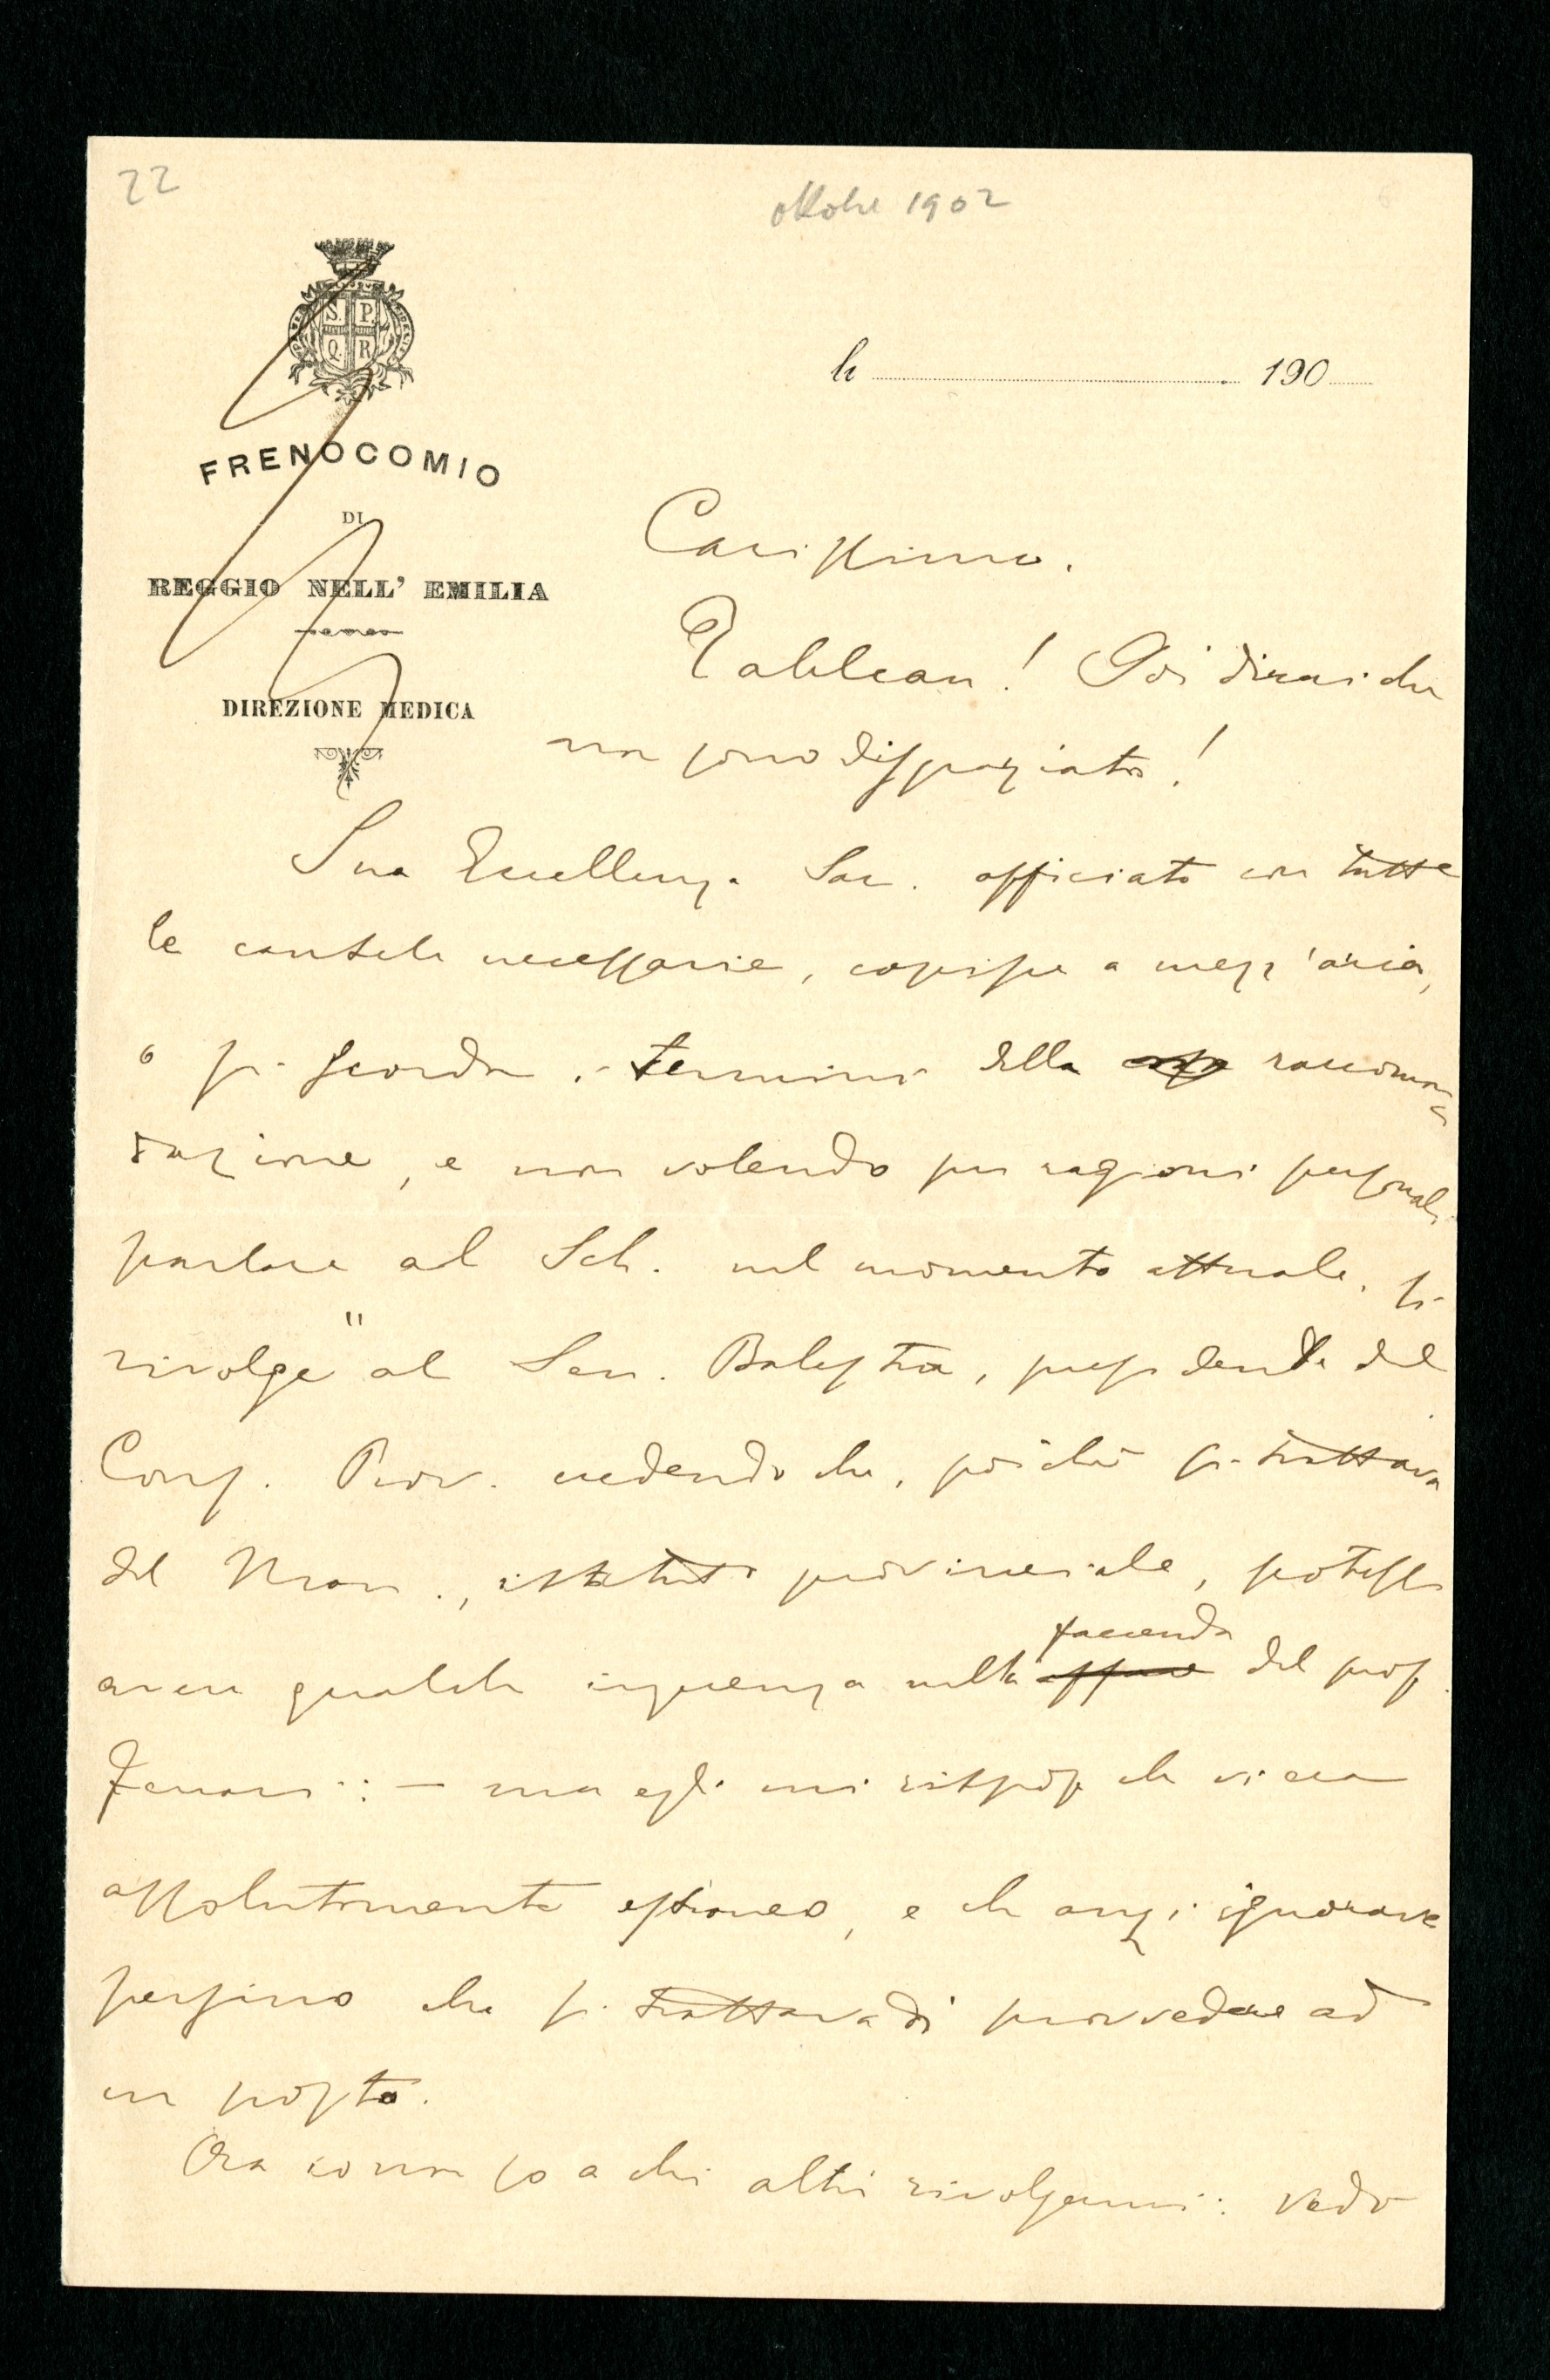 22
ottobre 1902
S. P.
Q R
FRENOCOMIO
DI
REGGIO NELL' EMILIA
DIREZIONE MEDICA
li 190
Carissimo.
Tableau! Poi dirai che
non sono disgraziato!
Sua Eccellenza Sac. officiato con tutte
le cautele necessarie, capisce a mezz'aria,
o si scorda i termini della raccoman
dazione, e non volendo per ragioni personali
parlare al Sch. nel momento attuale, si
rivolge al Sen. Balestra, presidente del
Cons. Prov. credendo che, poichè si trattava
del Man., istituto provinciale, potesse
avere qualche ingerenza nella faccenda del prof.
Ferrari: — ma egli mi rispose che vi era
assolutamente estraneo, e che anzi ignorava
persino che si trattava di provvedere ad
un posto.
Ora io non so a chi altri rivolgermi: vedo